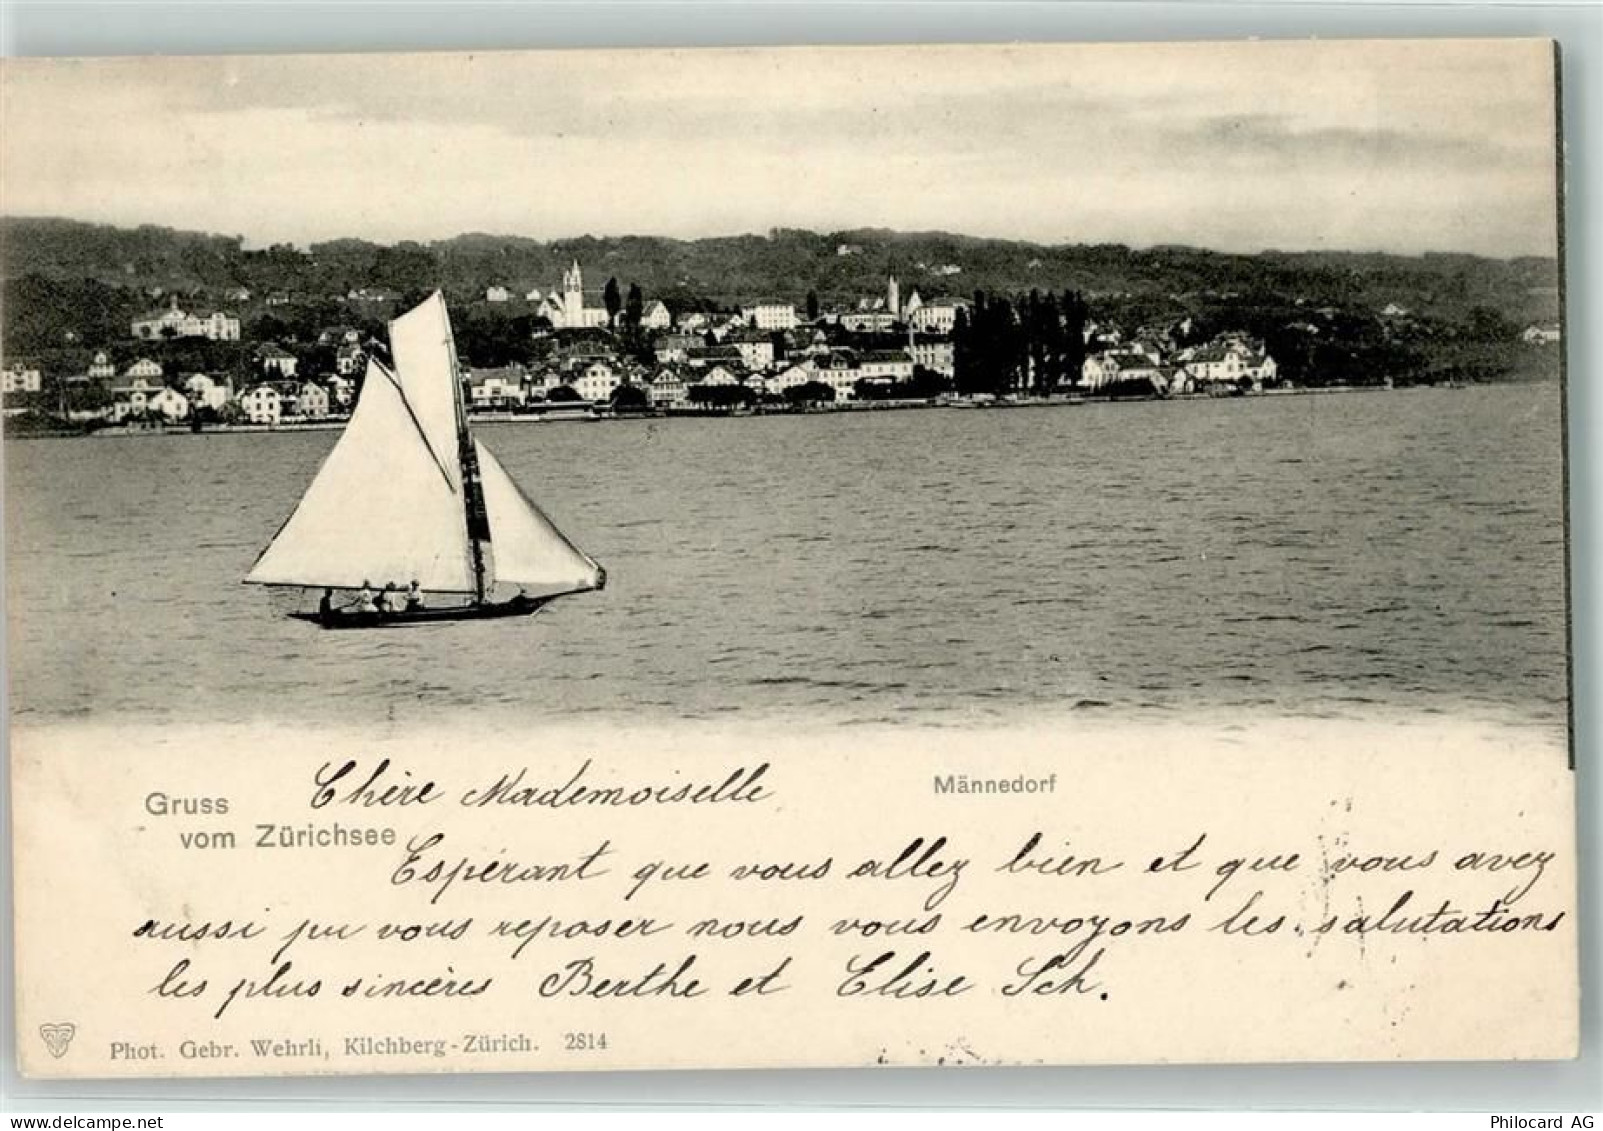 Chère Mademoiselle
Männedorf
Gruss
vom Zürichsee
Espérant que vous allez bien et que vous avez
aussi pu vous reposer nous vous envoyons les salutations
les plus sincères Berthe et Elise Sch.
Phot. Gebr. Wehrli, Kilchberg-Zürich. 2814
www.delcampe.net
Philocard AG